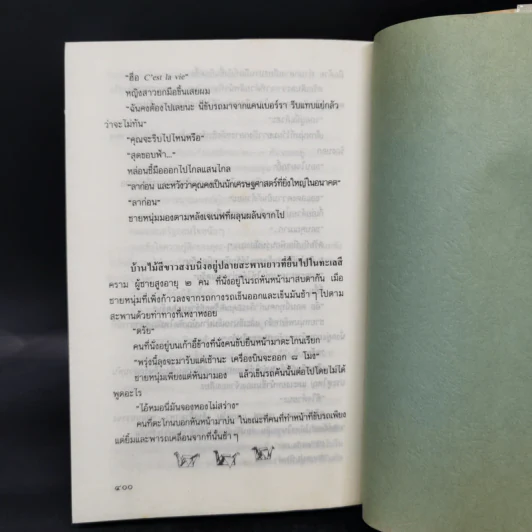 "ฮือ C'est la vie"
หญิงสาวยกมือขึ้นเสยผม
"ฉันคงต้องไปเลยนะ นี่ขับรถมาจากแคนเบอร์รา รีบแทบแย่กลัว
ว่าจะไม่ทัน"
"คุณจะรีบไปไหนหรือ"
"สุดขอบฟ้า..."
หล่อนชี้มือออกไปไกลแสนไกล
"ลาก่อน และหวังว่าคุณคงเป็นนักเศรษฐศาสตร์ที่ยิ่งใหญ่ในอนาคต"
"ลาก่อน"
ชายหนุ่มมองตามหลังเจนเฟที่ผลุนผลันจากไป
บ้านไม้สีขาวสงบนิ่งอยู่ปลายสะพานยาวที่ยื่นไปในทะเลสี
คราม ผู้ชายสูงอายุ ๒ คน ที่นั่งอยู่ในรถหันหน้ามาสบตากัน เมื่อ
ชายหนุ่มที่เพิ่งก้าวลงจากรถกางรถเข็นออกและเข็นมันช้า ๆ ไปตาม
สะพานด้วยท่าทางที่เหงาหงอย
"ตรัย"
คนที่นั่งอยู่บนเก้าอี้ข้างที่นั่งคนขับยื่นหน้ามาตะโกนเรียก
"พรุ่งนี้ลุงจะมารับแต่เช้านะ เครื่องบินจะออก ๘ โมง"
ชายหนุ่มเพียงแต่หันมามอง แล้วเข็นรถคันนั้นต่อไปโดยไม่ได้
พูดอะไร
"ไอ้หมอนี่มันจองหองไม่สร่าง"
คนที่ตะโกนบอกหันหน้ามาบ่น ในขณะที่คนที่ทำหน้าที่ขับรถเพียง
แต่ยิ้มและพารถเคลื่อนจากที่นั้นช้า ๆ
๔๐๐